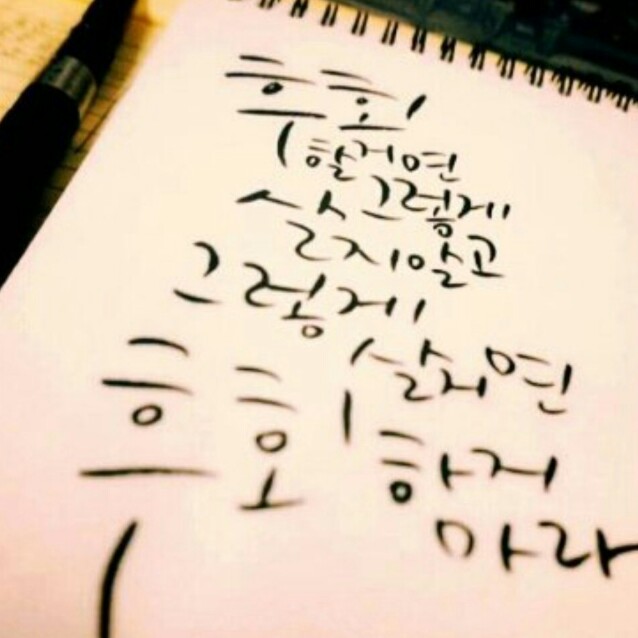 후회
할거면
그렇게
살지말고
그렇게
살거면
후회 하지
마라